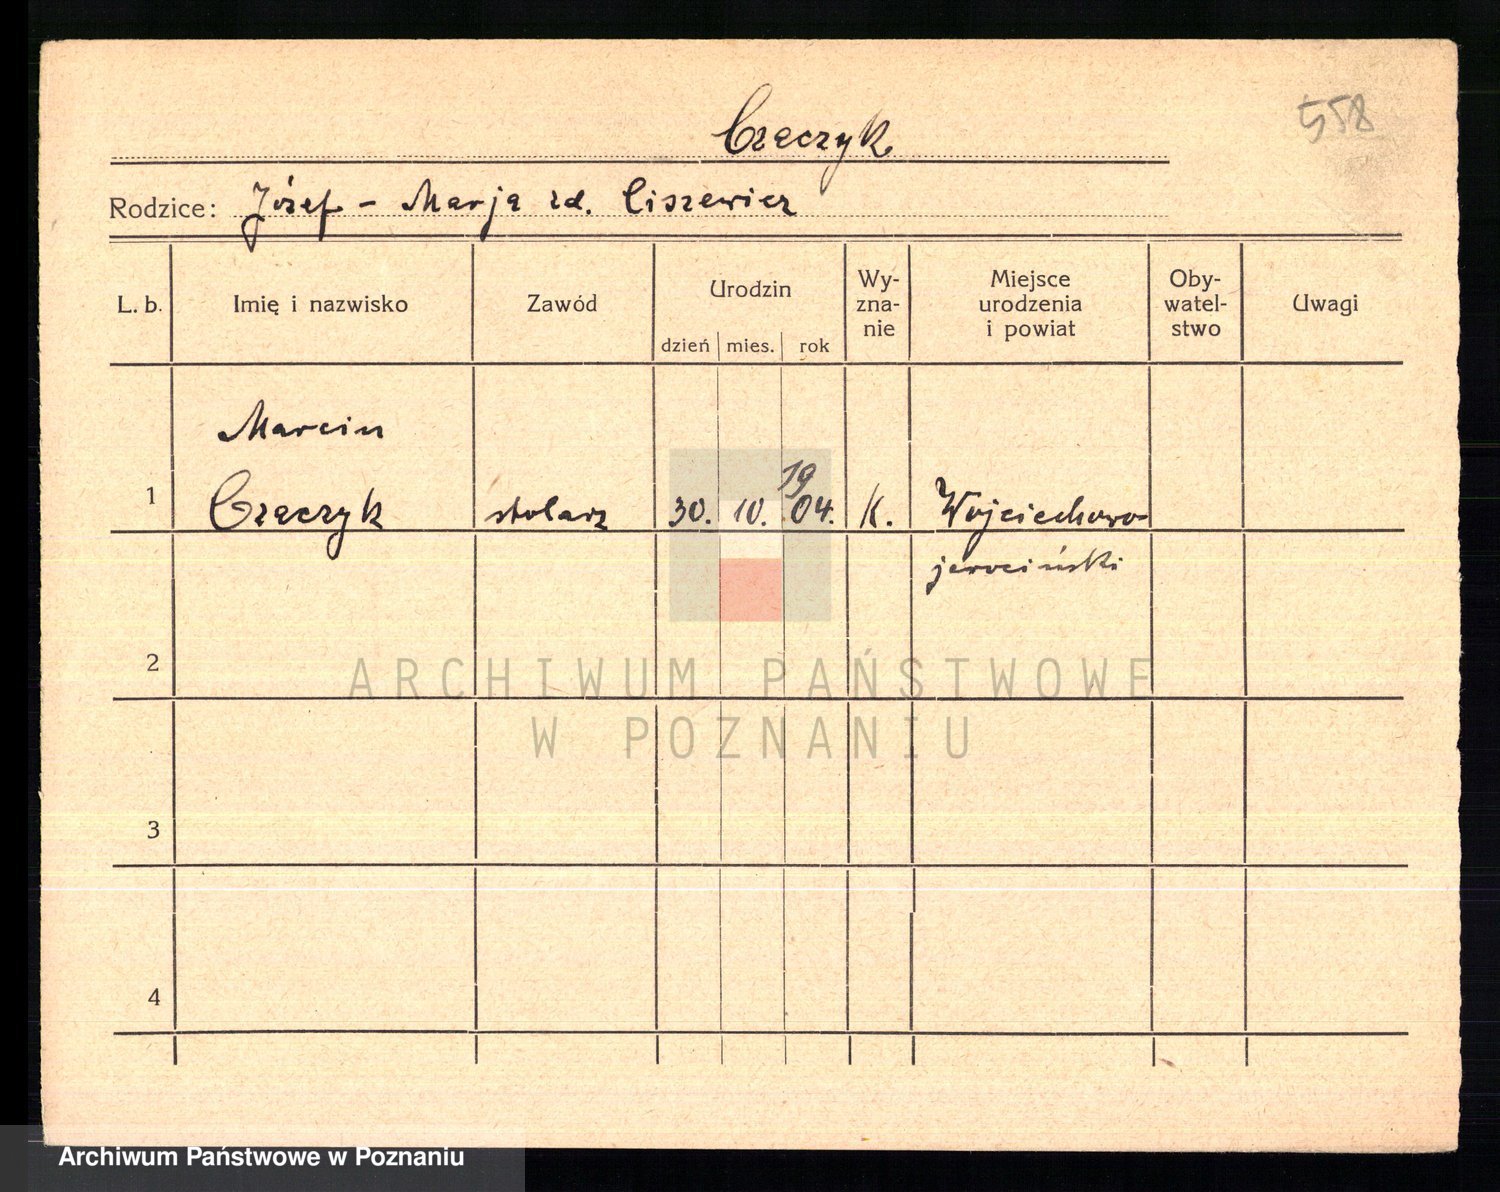 558
Czeczyk
Rodzice: Józef - Marja zd. Ciszewicz
L. b. Imię i nazwisko Zawód Urodzin dzień mies. rok Wy-zna-nie Miejsce urodzenia i powiat Oby-watel-stwo Uwagi
Marcin
1 Czeczyk stolarz 30. 10. 1904. K. Wojciechowo
jarociński
2
ARCHIWUM PAŃSTWOWE
W POZNANIU
3
4
Archiwum Państwowe w Poznaniu